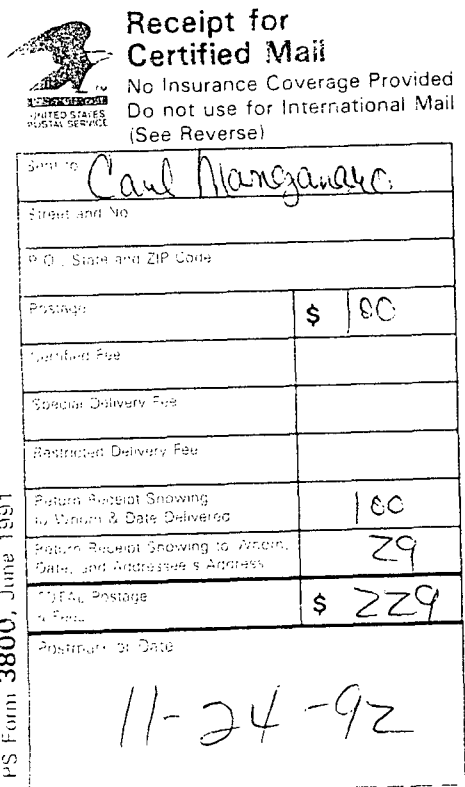 Receipt for
Certified Mail
No Insurance Coverage Provided
Do not use for International Mail
(See Reverse)
UNITED STATES
POSTAL SERVICE
Sent to
Carl Manganaro
Street and No.
P.O., State and ZIP Code
Postage $ 1 00
Certified Fee
Special Delivery Fee
Restricted Delivery Fee
Return Receipt Showing
to Whom & Date Delivered 1 00
Return Receipt Showing to Whom,
Date, and Addressee's Address 29
TOTAL Postage
& Fees $ 2 29
Postmark or Date
11-24-92
PS Form 3800, June 1991